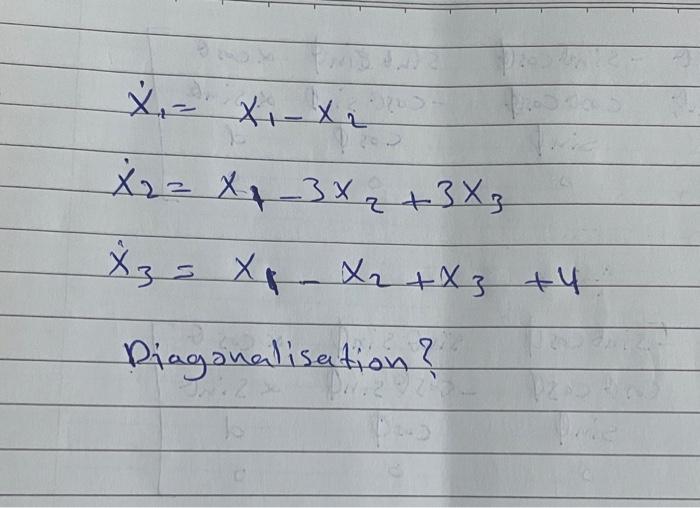 ẋ₁ = x₁ - x₂
ẋ₂ = x₁ - 3x₂ + 3x₃
ẋ₃ = x₁ - x₂ + x₃ + 4
Diagonalisation?